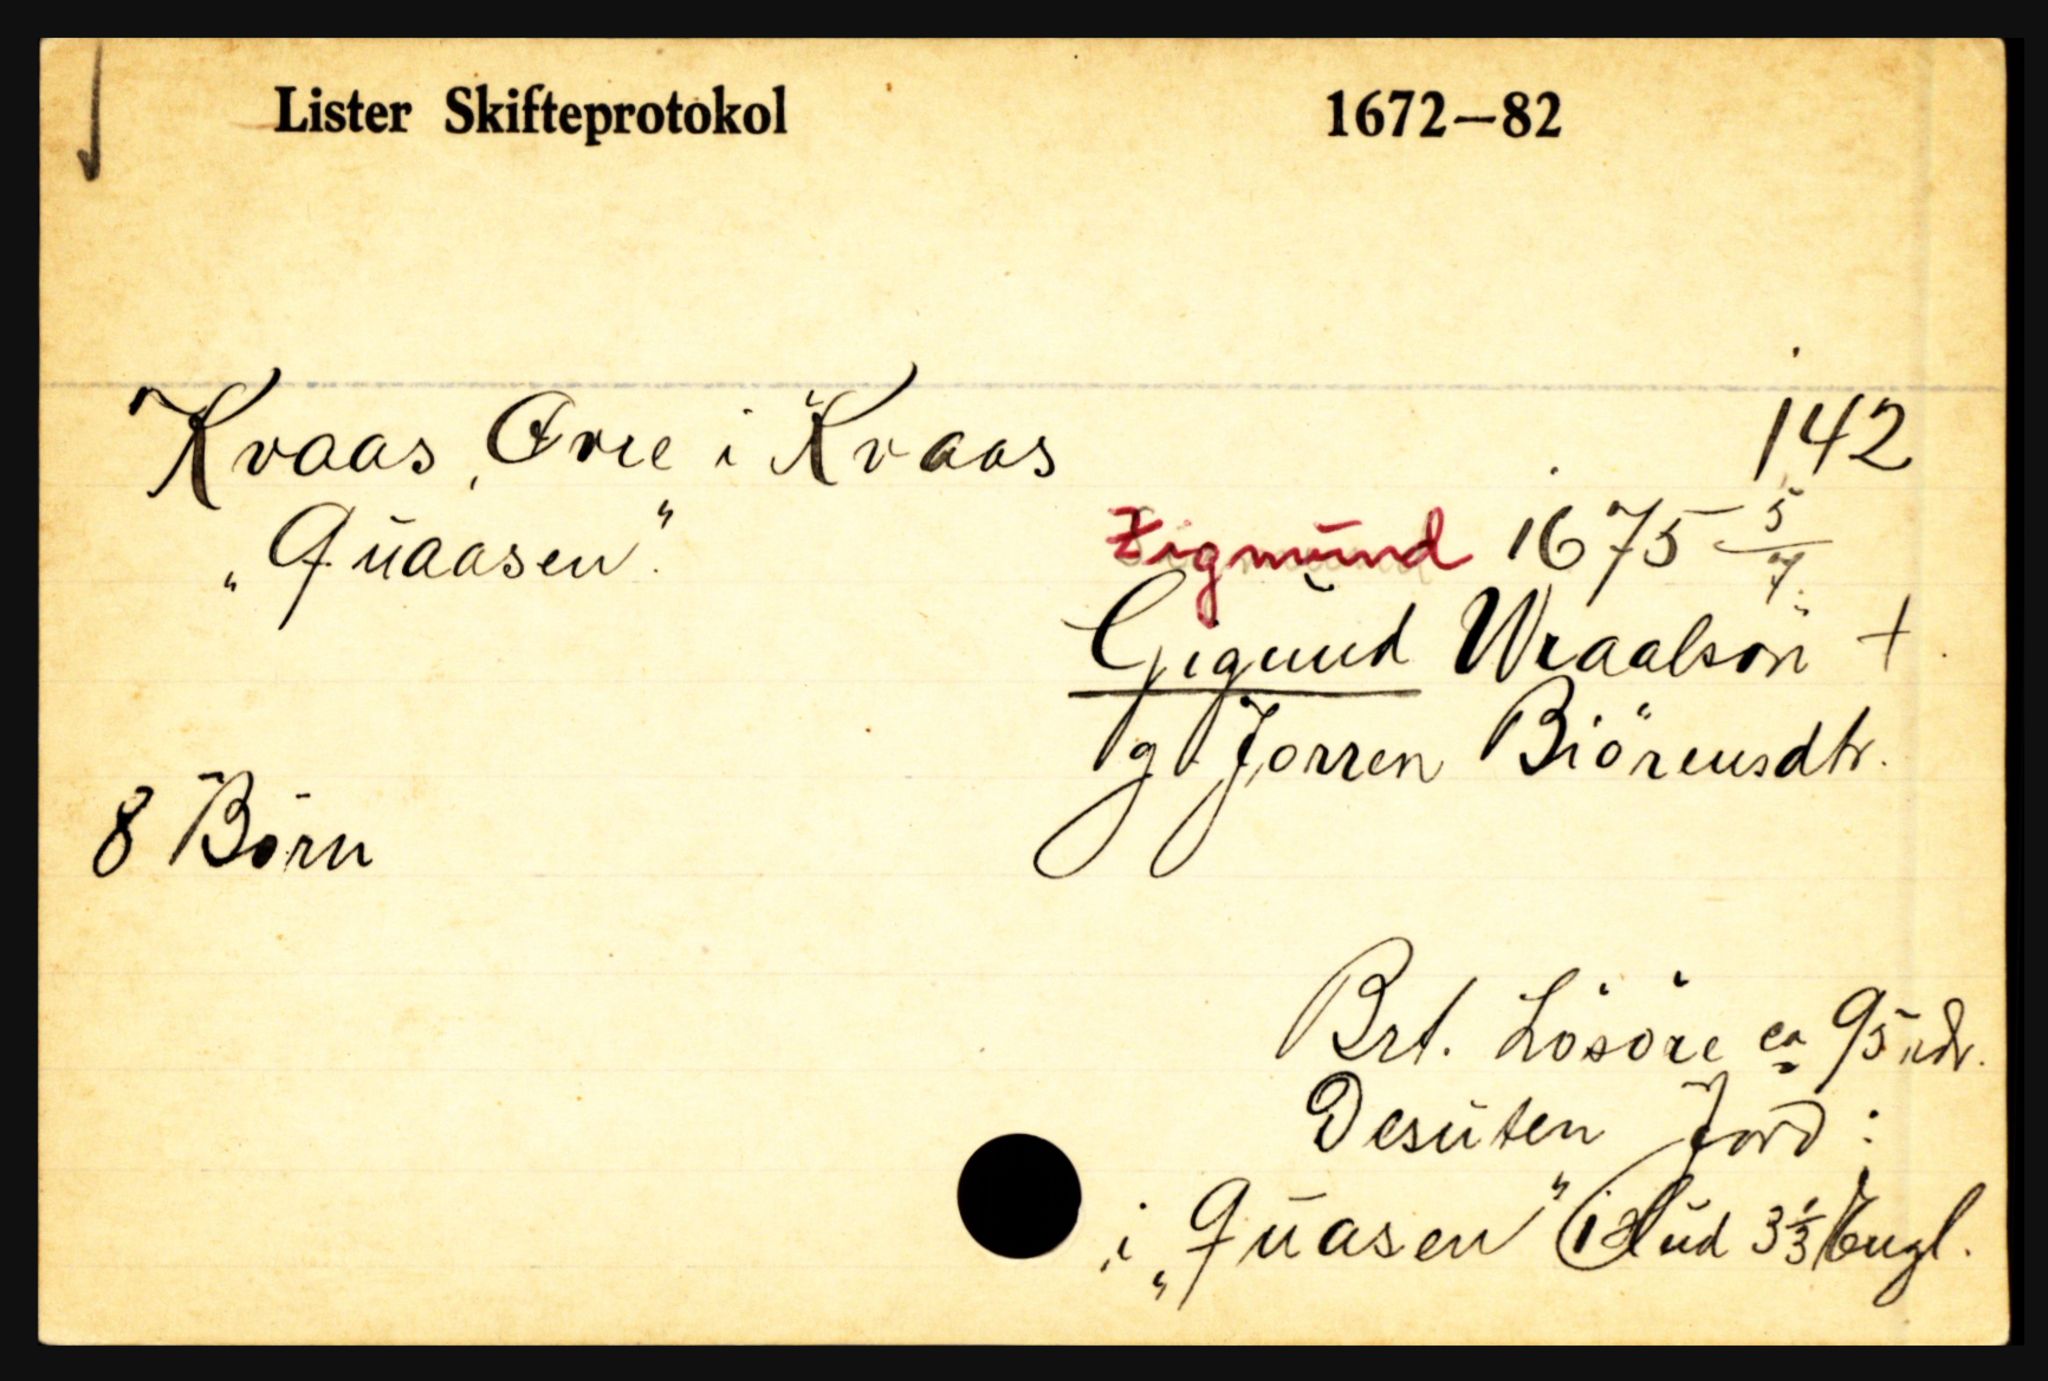 Lister Skifteprotokol 1672—82
Kvaas, Øvre i Kvaas 142
„Qŭaasen“. Zigmŭnd 1675 5/7.
Gigŭnd Wraalsön +
g Jorren Biörensdtr.
8 Börn
Brt. Lösöre ca 95 rdr.
Desŭten Jord:
i „Qŭasen“ 1 Hŭd 3 1/3 Engl.